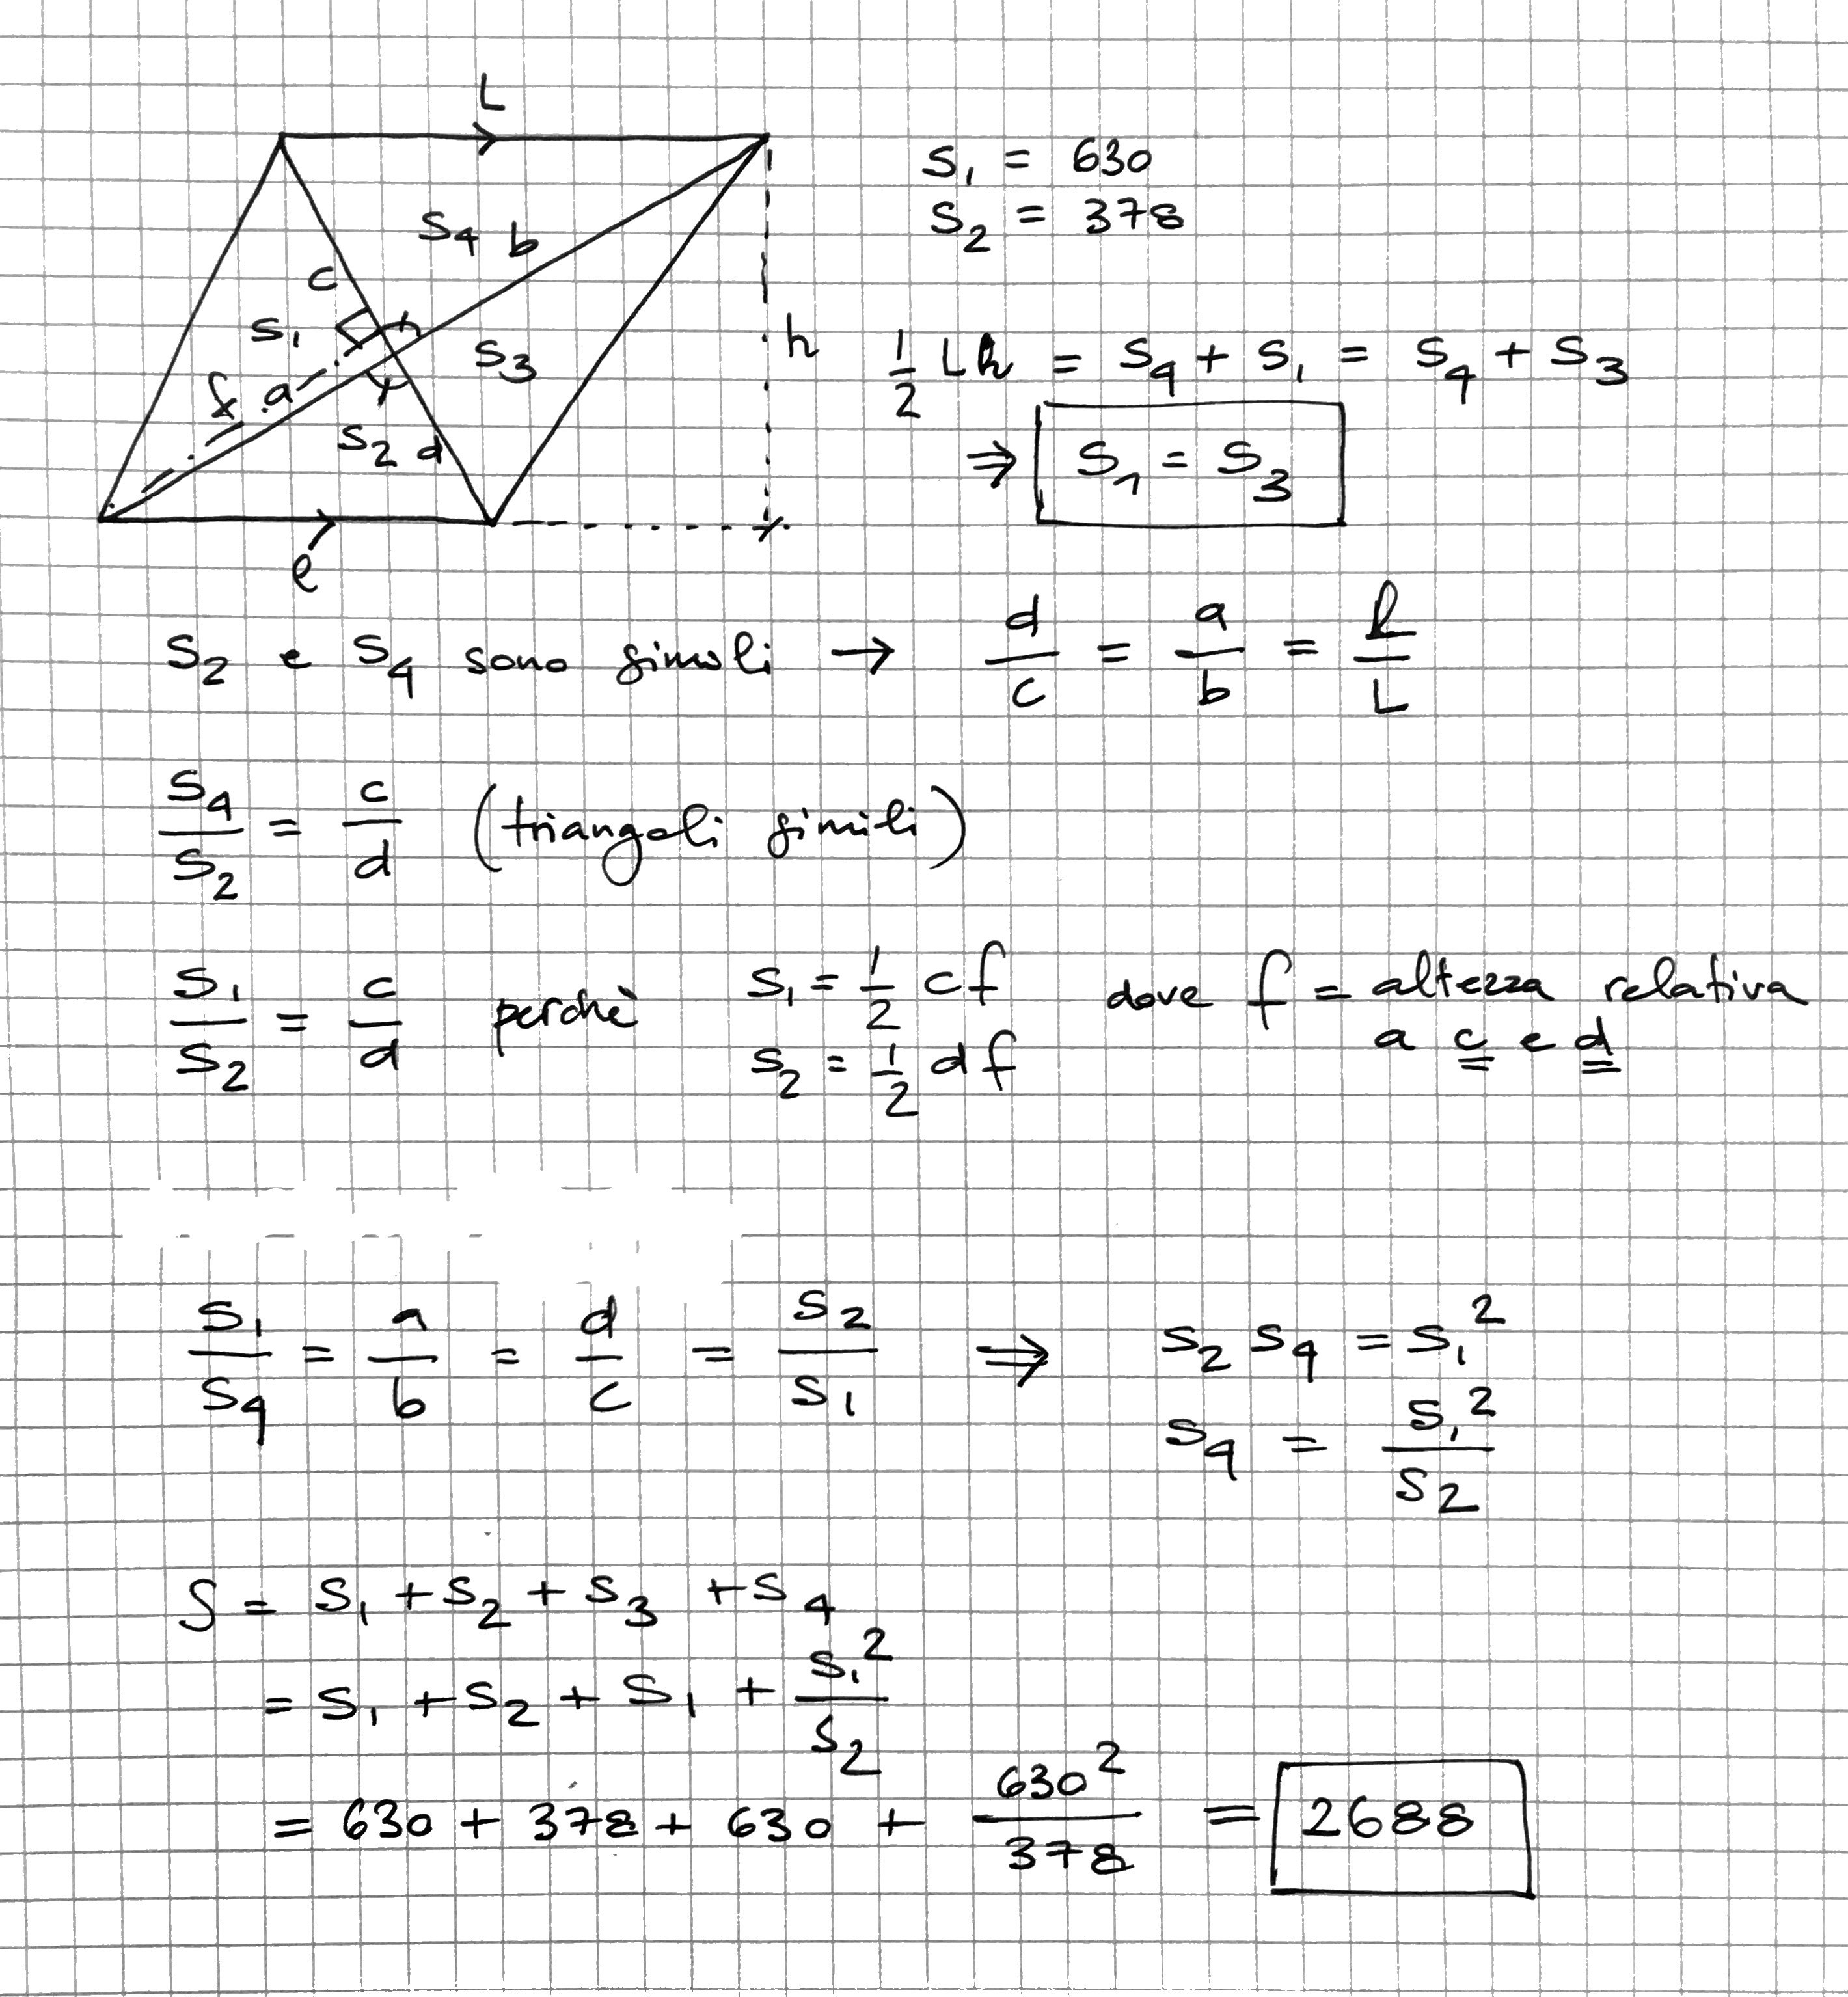 L
S₁ = 630
S₂ = 378
S₄ b
c
S₁
S₃
h
½ L h = S₄ + S₁ = S₄ + S₃
f a
S₂ d
⇒ S₁ = S₃
l
S₂ e S₄ sono simili → d/c = a/b = l/L
S₄/S₂ = c/d (triangoli simili)
S₁/S₂ = c/d perchè S₁ = ½ c f dove f = altezza relativa
S₂ = ½ d f a c e d
S₁/S₄ = a/b = d/c = S₂/S₁ ⇒ S₂ S₄ = S₁²
S₄ = S₁²/S₂
S = S₁ + S₂ + S₃ + S₄
= S₁ + S₂ + S₁ + S₁²/S₂
= 630 + 378 + 630 + 630²/378 = 2688